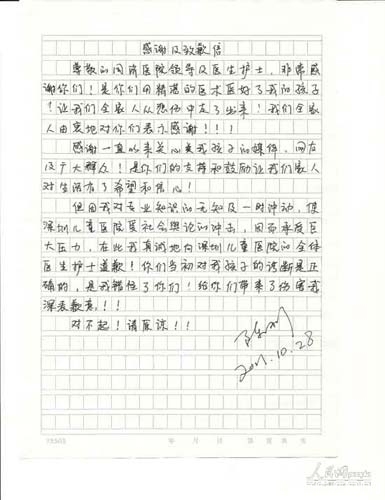 感谢及致歉信
尊敬的同济医院领导及医生护士，非常感
谢你们！是你们用精湛的医术医好了我的孩子
！让我们全家人从恐怖中走了出来！我们全家
人由衷地对你们表示感谢！！！
感谢一直以来关心支我孩子的媒体，网友
及广大群众！是你们的支持和鼓励让我们家人
对生活有了希望和信心！
但因我对专业知识的无知及一时冲动，使
深圳儿童医院受社会舆论的冲击，因而承受巨
大压力，在此我真诚地向深圳儿童医院的全体
医生护士道歉！你们当初对我孩子的诊断是正
确的，是我错怪了你们！给你们带来了伤害我
深表歉意！！！
对不起！请原谅！！
2011.10.28
年 月 日 第 页 共 页
人民网